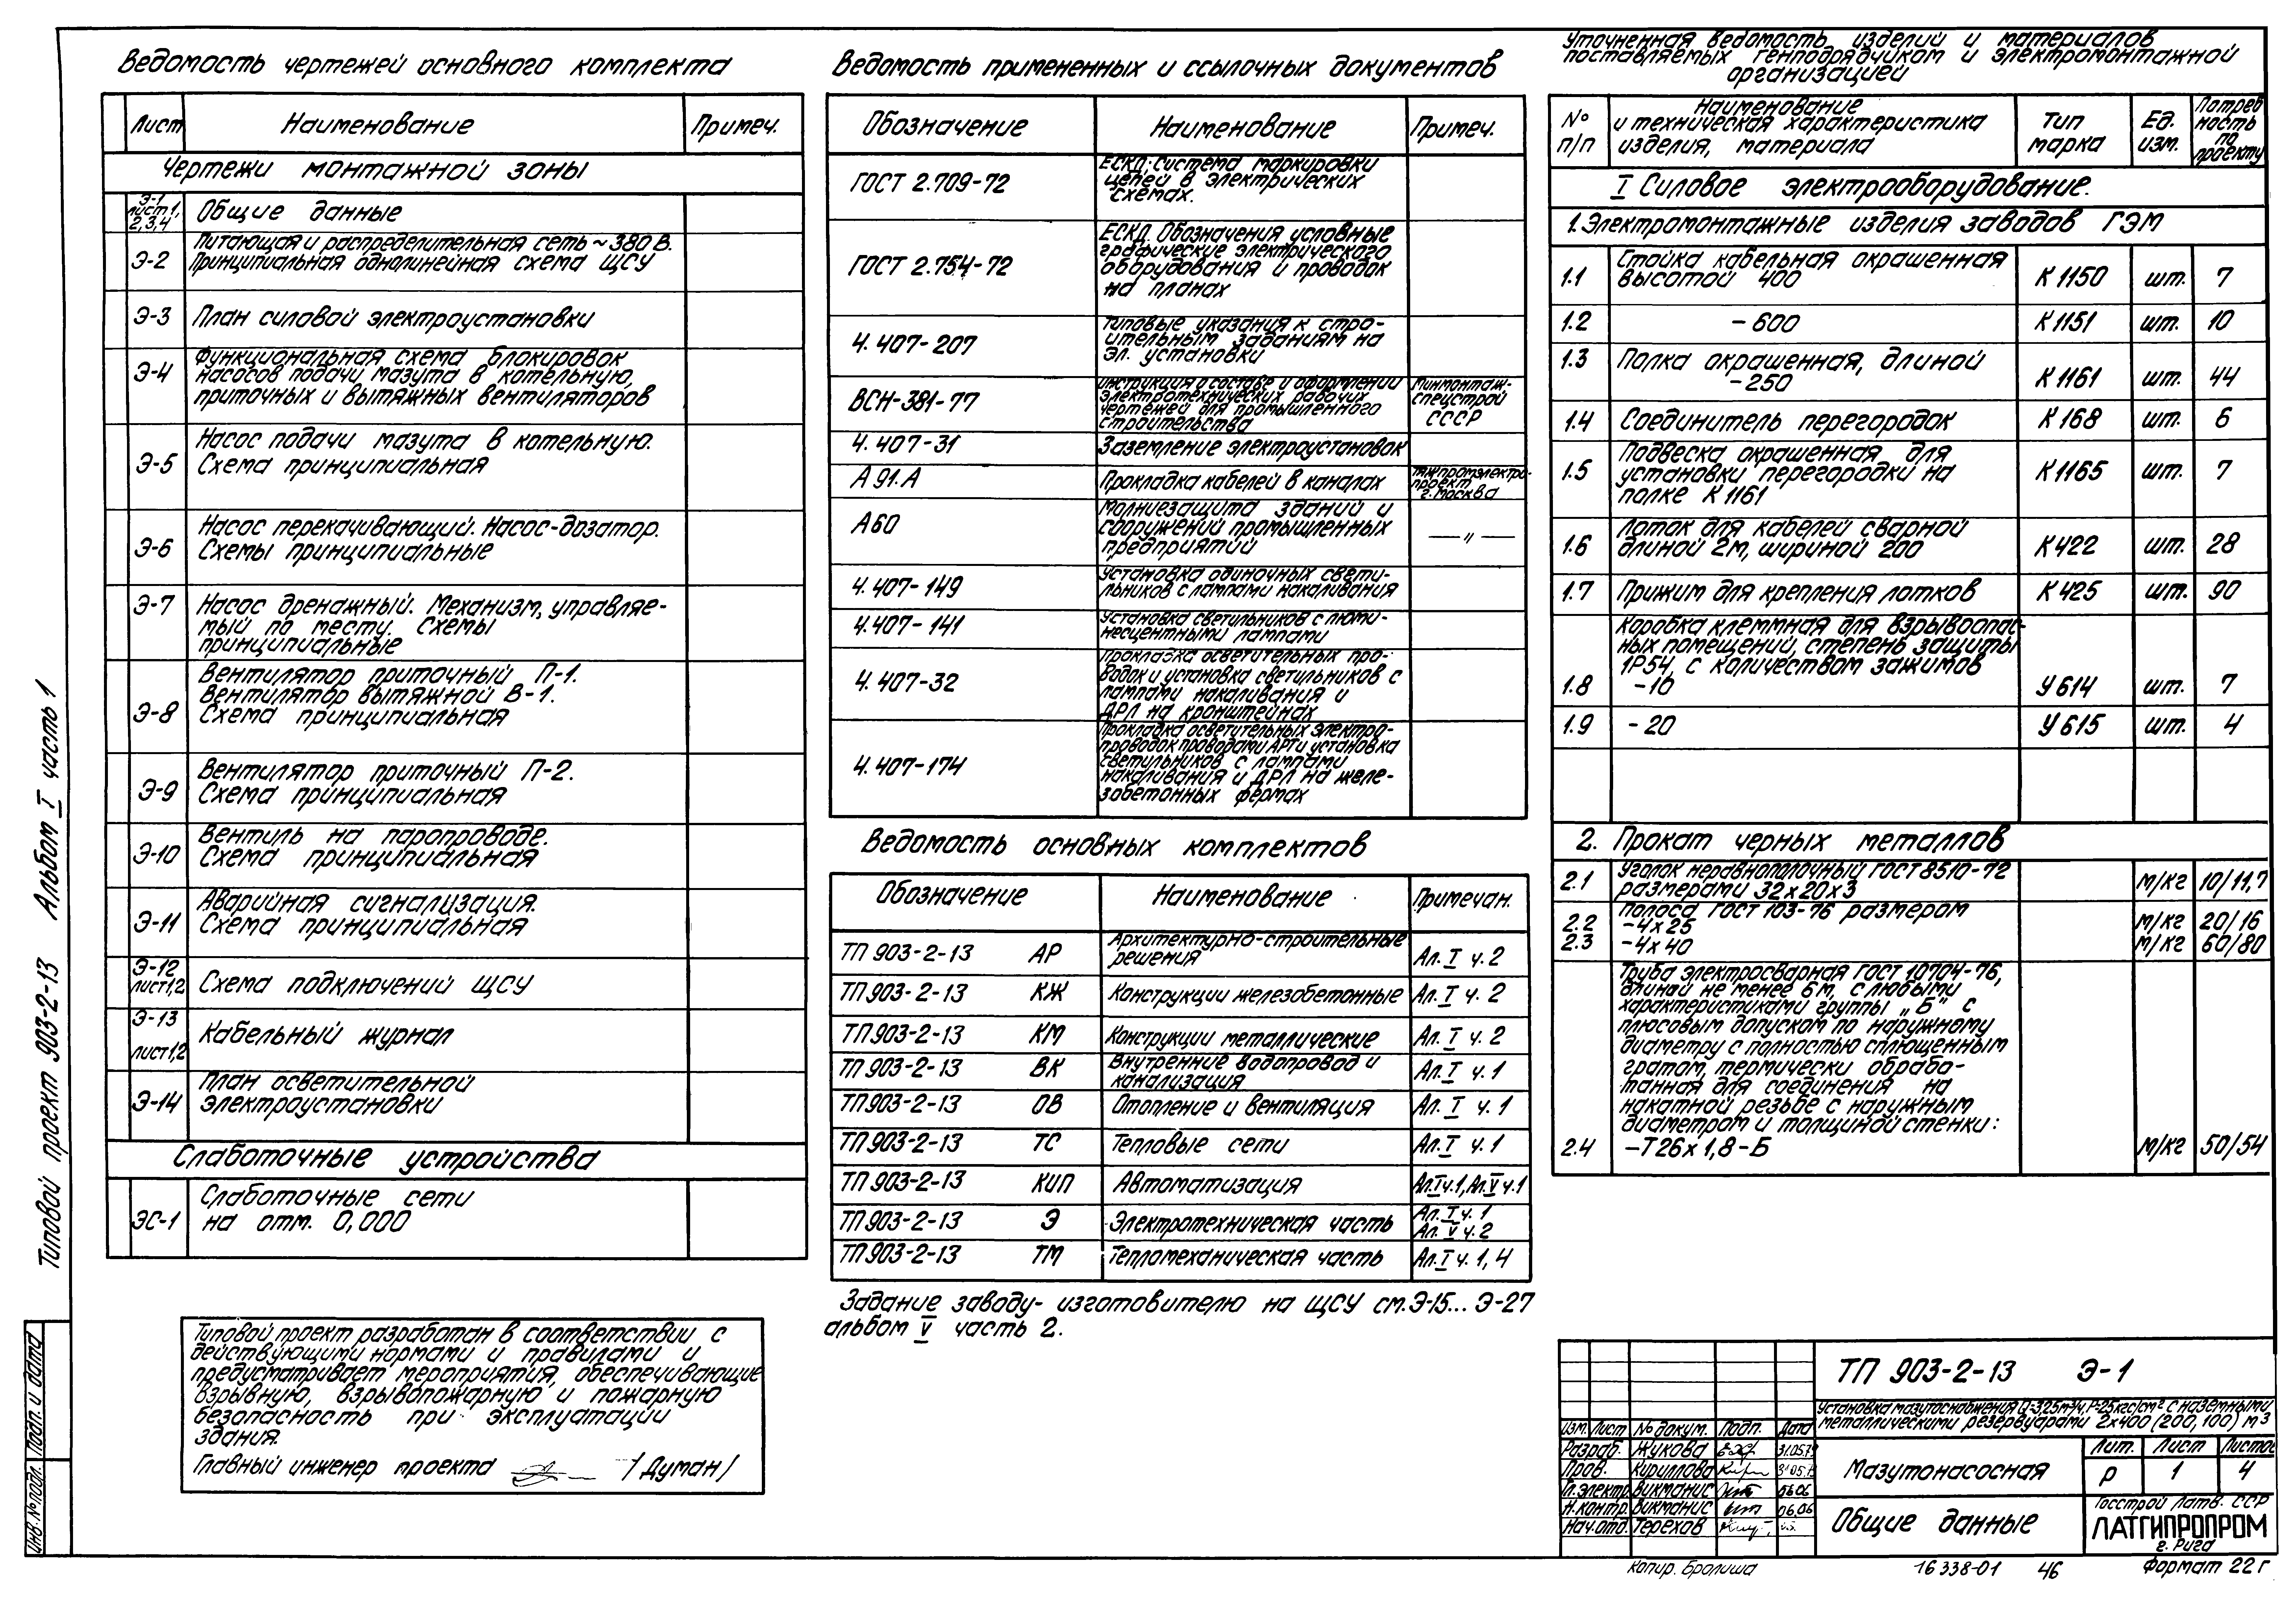 Ведомость чертежей основного комплекта
Лист Наименование Примеч.
Чертежи монтажной зоны
Э-1 лист 1, 2,3,4 Общие данные
Э-2 Питающая и распределительная сеть ~380 В.
Принципиальная однолинейная схема ЩСУ
Э-3 План силовой электроустановки
Э-4 Функциональная схема блокировок
насосов подачи мазута в котельную,
приточных и вытяжных вентиляторов
Э-5 Насос подачи мазута в котельную.
Схема принципиальная
Э-6 Насос перекачивающий. Насос-дозатор.
Схемы принципиальные
Э-7 Насос дренажный. Механизм, управляе-
мый по месту. Схемы
принципиальные
Э-8 Вентилятор приточный П-1.
Вентилятор вытяжной В-1.
Схема принципиальная
Э-9 Вентилятор приточный П-2.
Схема принципиальная
Э-10 Вентиль на паропроводе.
Схема принципиальная
Э-11 Аварийная сигнализация.
Схема принципиальная
Э-12 лист1,2 Схема подключений ЩСУ
Э-13 лист1,2 Кабельный журнал
Э-14 План осветительной
электроустановки
Слаботочные устройства
ЭС-1 Слаботочные сети
на отм. 0,000
Типовой проект разработан в соответствии с
действующими нормами и правилами и
предусматривает мероприятия, обеспечивающие
взрывную, взрывопожарную и пожарную
безопасность при эксплуатации
здания.
Главный инженер проекта /Думан/
Ведомость примененных и ссылочных документов
Обозначение Наименование Примеч.
ГОСТ 2.709-72 ЕСКД; Система маркировки
цепей в электрических
схемах.
ГОСТ 2.754-72 ЕСКД. Обозначения условные
графические электрического
оборудования и проводок
на планах
4.407-207 Типовые указания к стро-
ительным заданиям на
эл. установки
ВСН-381-77 Инструкция о составе и оформлении
электротехнических рабочих
чертежей для промышленного
строительства
Минмонтаж-
спецстрой
СССР
4.407-31 Заземление электроустановок
А 91.А Прокладка кабелей в каналах
Тяжпромэлектро-
проект
г. Москва
А60 Молниезащита зданий и
сооружений промышленных
предприятий — " —
4.407-149 Установка одиночных свети-
льников с лампами накаливания
4.407-141 Установка светильников с люми-
несцентными лампами
4.407-32 Прокладка осветительных про-
водок и установка светильников с
лампами накаливания и
ДРЛ на кронштейнах
4.407-174 Прокладка осветительных электро-
проводок проводами АРТ и установка
светильников с лампами
накаливания и ДРЛ на желе-
зобетонных фермах
Ведомость основных комплектов
Обозначение Наименование Примечан.
ТП 903-2-13 АР Архитектурно-строительные
решения Ал. I ч. 2
ТП 903-2-13 КЖ Конструкции железобетонные Ал. I ч. 2
ТП 903-2-13 КМ Конструкции металлические Ал. I ч. 2
ТП 903-2-13 ВК Внутренние водопровод и
канализация Ал. I ч. 1
ТП 903-2-13 ОВ Отопление и вентиляция Ал. I ч. 1
ТП 903-2-13 ТС Тепловые сети Ал. I ч. 1
ТП 903-2-13 КИП Автоматизация Ал. I ч.1, Ал. V ч.1
ТП 903-2-13 Э Электротехническая часть Ал. I ч. 1
Ал. V ч. 2
ТП 903-2-13 ТМ Тепломеханическая часть Ал. I ч. 1, 4
Задание заводу-изготовителю на ЩСУ см. Э-15... Э-27
альбом V часть 2.
Уточненная ведомость изделий и материалов
поставляемых генподрядчиком и электромонтажной
организацией
№ п/п Наименование
и техническая характеристика
изделия, материала
Тип марка Ед. изм. Потреб ность по проекту
I Силовое электрооборудование.
1. Электромонтажные изделия заводов ГЭМ
1.1 Стойка кабельная окрашенная
высотой 400 К 1150 шт. 7
1.2 - 600 К 1151 шт. 10
1.3 Полка окрашенная, длиной
-250 К 1161 шт. 44
1.4 Соединитель перегородок К 168 шт. 6
1.5 Подвеска окрашенная для
установки перегородки на
полке К 1161 К 1165 шт. 7
1.6 Лоток для кабелей сварной
длиной 2м, шириной 200 К 422 шт. 28
1.7 Прижим для крепления лотков К 425 шт. 90
Коробка клеммная для взрывоопас-
ных помещений, степень защиты
1Р54, с количеством зажимов
1.8 - 10 У 614 шт. 7
1.9 - 20 У 615 шт. 4
2. Прокат черных металлов
2.1 Уголок неравнополочный ГОСТ 8510-72
размерами 32х20х3 м/кг 10/11,7
Полоса ГОСТ 103-76 размером
2.2 -4х25 м/кг 20/16
2.3 -4х40 м/кг 60/80
Труба электросварная ГОСТ 10704-76,
длиной не менее 6м, с любыми
характеристиками группы „Б" с
плюсовым допуском по наружному
диаметру с полностью сплющенным
гратом, термически обрабо-
танная для соединения на
накатной резьбе с наружным
диаметром и толщиной стенки:
2.4 -Т26х1,8-Б м/кг 50/54
ТП 903-2-13 Э-1
Установка мазутоснабжения Q=3,25м³/ч, Р=25кгс/см² с наземными
металлическими резервуарами 2х400 (200, 100) м3
Изм. Лист № докум. Подп. Дата
Разраб. Жукова 31.05.79
Пров. Кириллова 31.05.79
Гл. электр. Викманис 06.06
Н. контр. Викманис 06.06
Нач. отд. Терехов
Мазутонасосная
Лит. Лист Листов
Р 1 4
Общие данные
Госстрой Латв. ССР
ЛАТГИПРОПРОМ
г. Рига
Копир. Бролиша 16338-01 46 Формат 22 г
Типовой проект 903-2-13 Альбом I часть 1
Инв. № подл. Подп. и дата